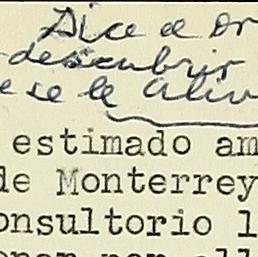 Dice a Dr
descubrir
e se le aliv
estimado am
de Monterrey
onsultorio l